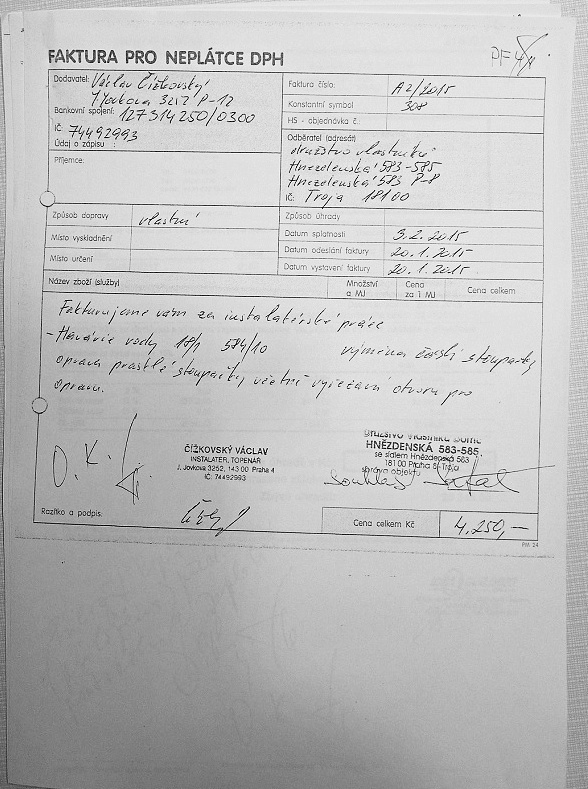 FAKTURA PRO NEPLÁTCE DPH
Dodavatel: Václav Čížkovský
3252 P-12
Bankovní spojení: 127314250/0300
IČ: 74492993
Údaj o zápisu :
Příjemce:
Faktura číslo: A2/2015
Konstantní symbol 308
HS - objednávka č.:
Odběratel (adresát)
družstvo vlastníků
Hnězdenská 583-585
Hnězdenská 583 P-8
IČ: Troja 18100
Způsob dopravy vlastní
Místo vyskladnění
Místo určení
Způsob úhrady
Datum splatnosti 3.2.2015
Datum odeslání faktury 20.1.2015
Datum vystavení faktury 20.1.2015
Název zboží (služby) Množství a MJ Cena za 1 MJ Cena celkem
Fakturujeme vám za instalatérské práce
- Havárie vody 18/1 584/10 výměna části stoupačky
oprava prasklé stoupačky včetně vyřezání otvoru pro
opravu.
O.K.!
ČÍŽKOVSKÝ VÁCLAV
INSTALATER, TOPENÁŘ
J. Jovkova 3252, 143 00 Praha 4
IČ: 74492993
Družstvo vlastníků domu
HNĚZDENSKÁ 583-585,
se sídlem Hnězdenská 583
181 00 Praha 8-Troja
správa objektu
souhlas
Razítko a podpis:
Cena celkem Kč 4.250,-
PM 24